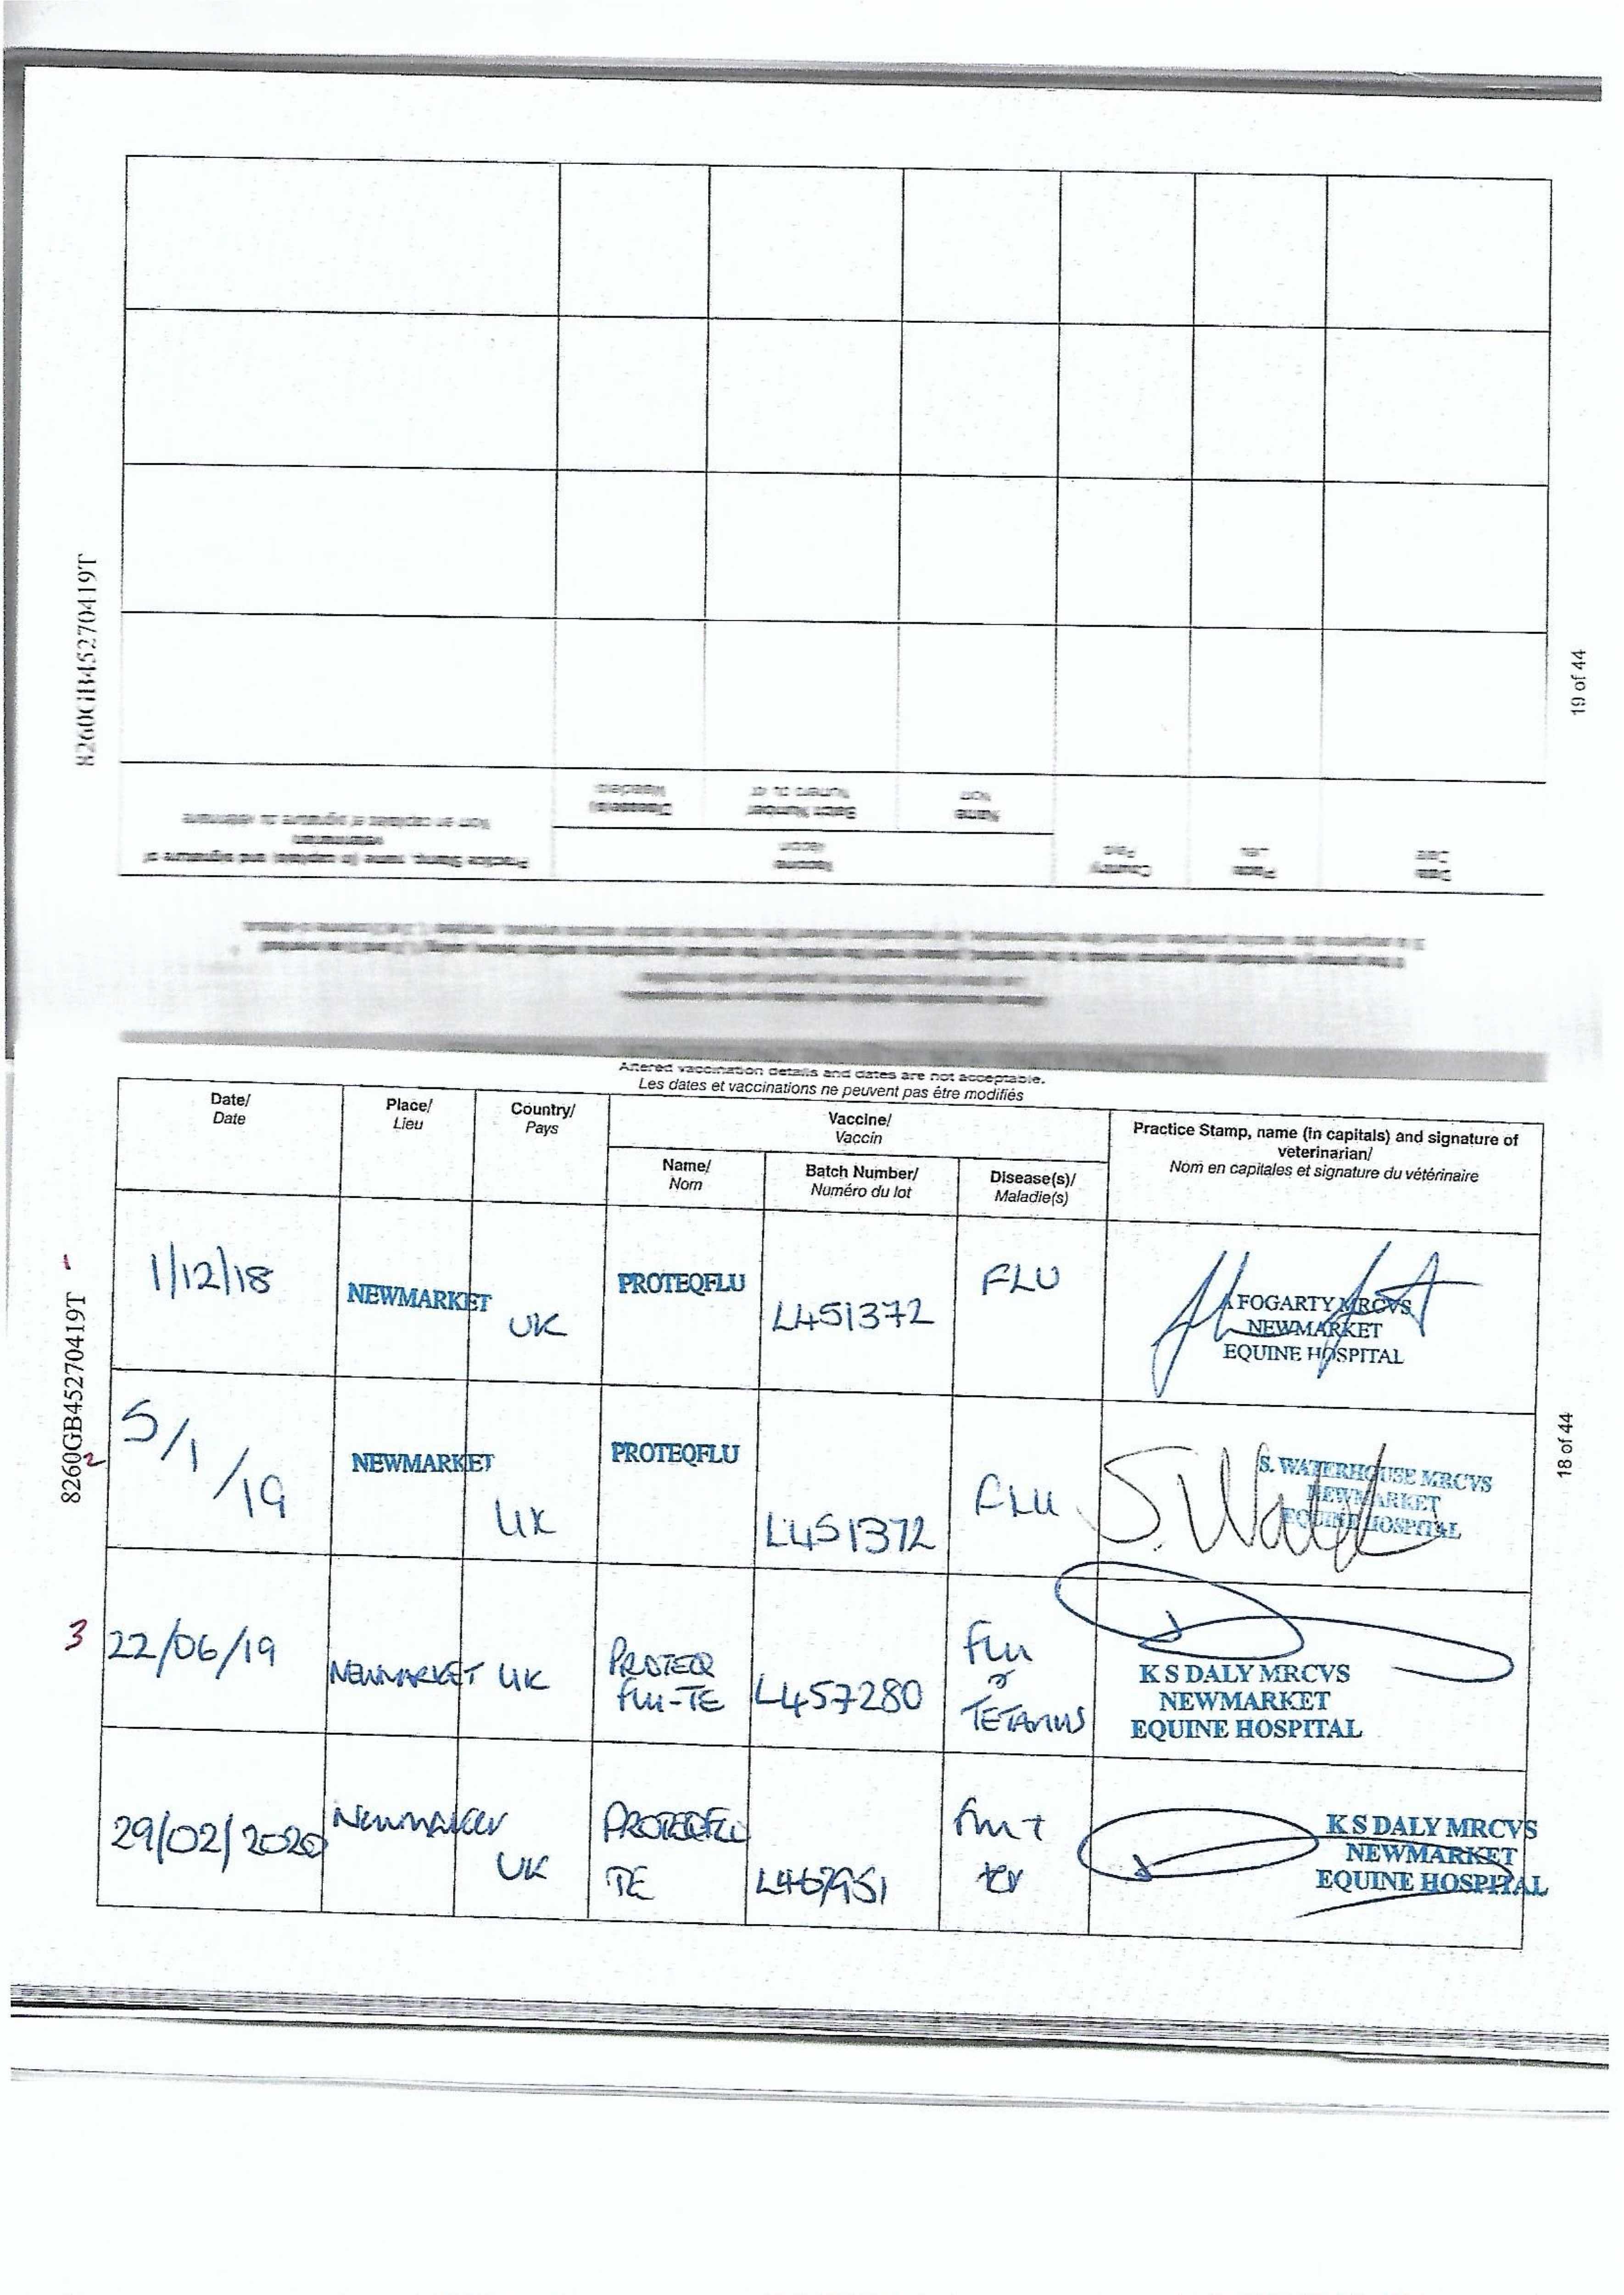 8260GB45270419T
19 of 44
Practice Stamp, name (in capitals) and signature of
veterinarian
Nom en capitales et signature du vétérinaire
Vaccine
Vaccin
Disease(s)
Maladie(s)
Batch Number
Numéro du lot
Name
Nom
Country
Pays
Place
Lieu
Date
Date
Altered vaccination details and dates are not acceptable.
Les dates et vaccinations ne peuvent pas être modifiés
Date/
Date
Place/
Lieu
Country/
Pays
Vaccine/
Vaccin
Name/
Nom
Batch Number/
Numéro du lot
Disease(s)/
Maladie(s)
Practice Stamp, name (in capitals) and signature of
veterinarian/
Nom en capitales et signature du vétérinaire
1
1/12/18
NEWMARKET
UK
PROTEQFLU
L451372
FLU
FOGARTY MRCVS
NEWMARKET
EQUINE HOSPITAL
8260GB45270419T
2
5/1/19
NEWMARKET
UK
PROTEQFLU
L451372
FLU
S. WATERHOUSE MRCVS
NEWMARKET
EQUINE HOSPITAL
18 of 44
3
22/06/19
NEWMARKET UK
PROTEQ
FLU-TE
L457280
Flu
&
TETANUS
K S DALY MRCVS
NEWMARKET
EQUINE HOSPITAL
29/02/2020
Newmarket
UK
PROTEQFLU
TE
K S DALY MRCVS
NEWMARKET
EQUINE HOSPITAL